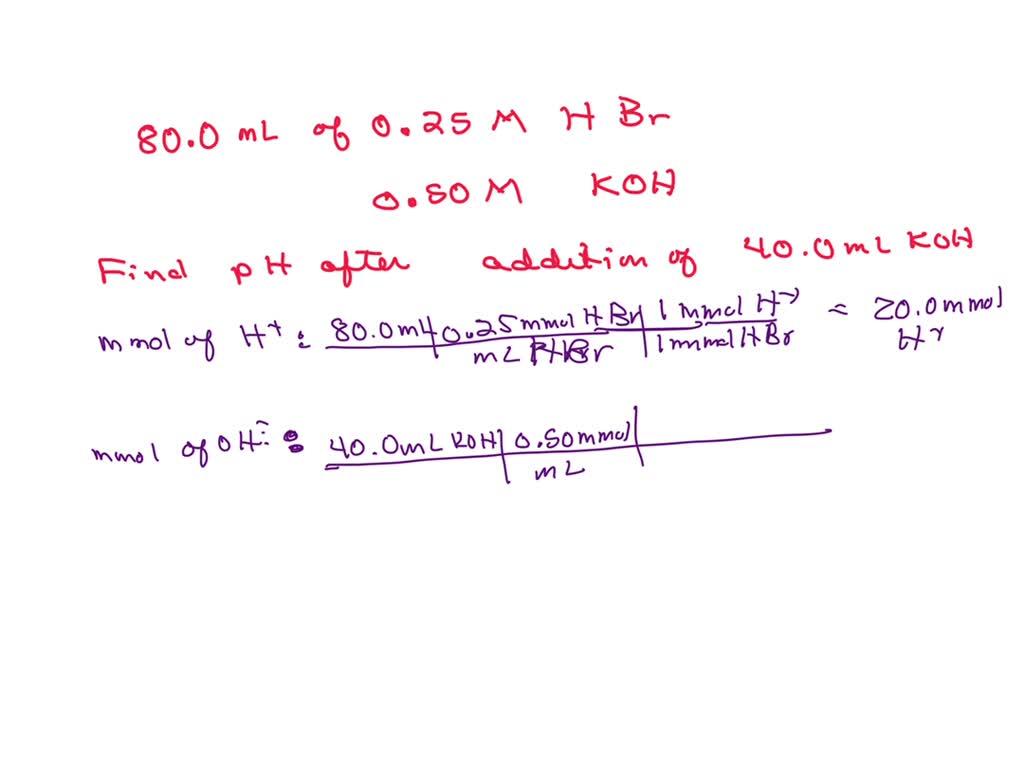 80.0 mL of 0.25 M H Br
0.50 M KOH
Find pH after addition of 40.0 mL KOH
mmol of H+ : 80.0 mL 0.25 mmol HBr 1 mmol H+ = 20.0 mmol
mL HBr 1 mmol HBr H+
mmol of OH- : 40.0 mL KOH 0.50 mmol
mL